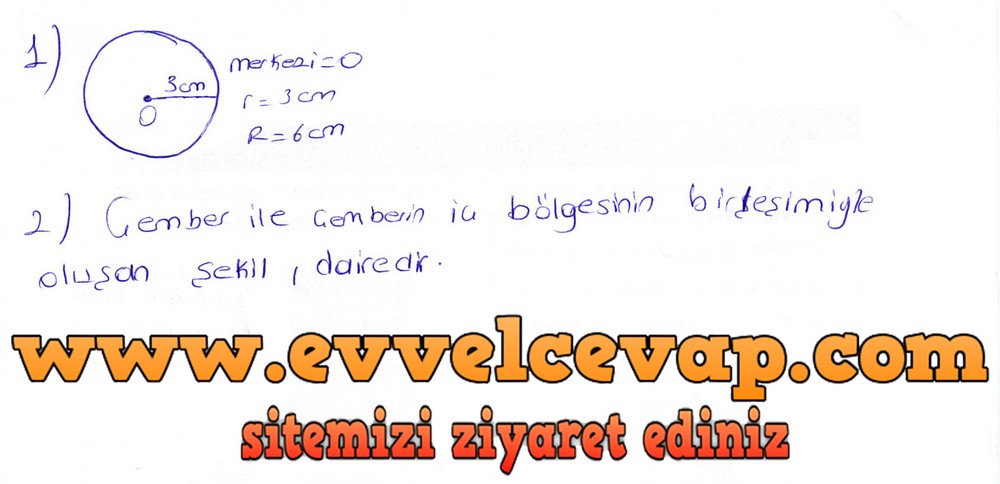 1)
3cm
O
merkezi=O
r=3cm
R=6cm
2) Çember ile çemberin iç bölgesinin birleşimiyle
oluşan şekil, dairedir.
www.evvelcevap.com
sitemizi ziyaret ediniz